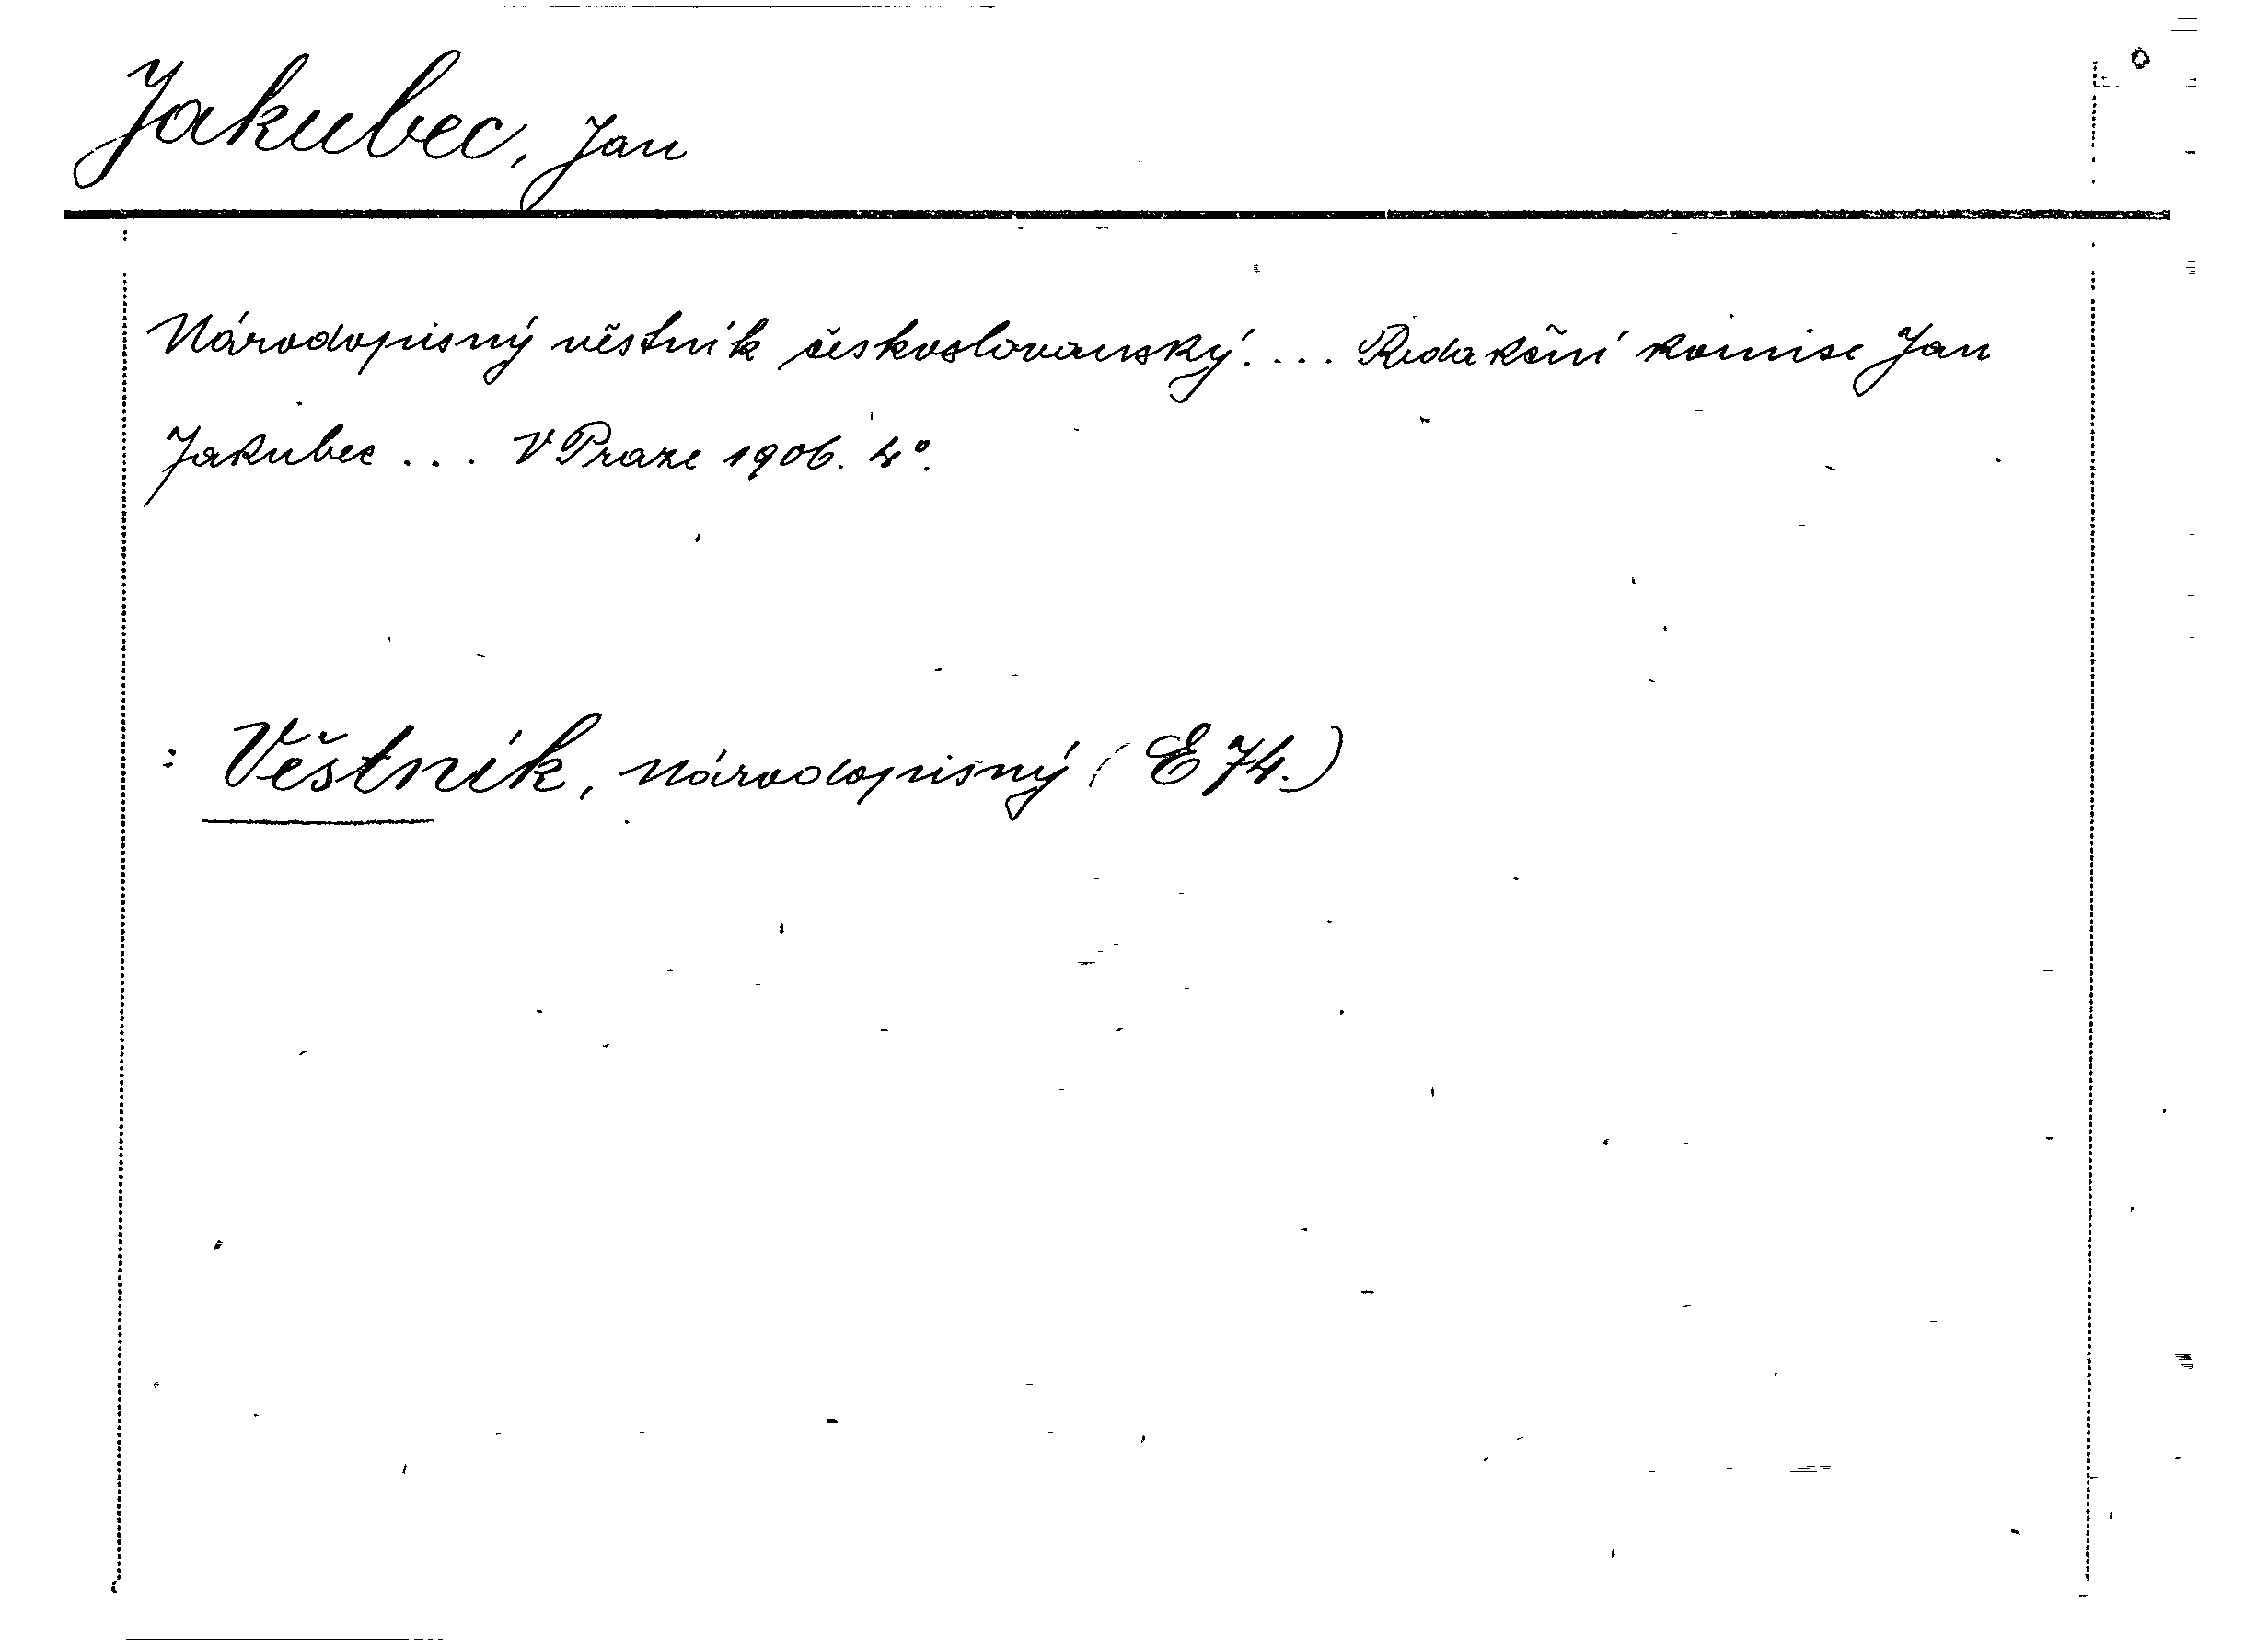 Jakubec, Jan
Národopisný věstník českoslovanský. ... Redakční komise Jan
Jakubec ... V Praze 1906. 4°.
: Věstník, národopisný (E 74.)